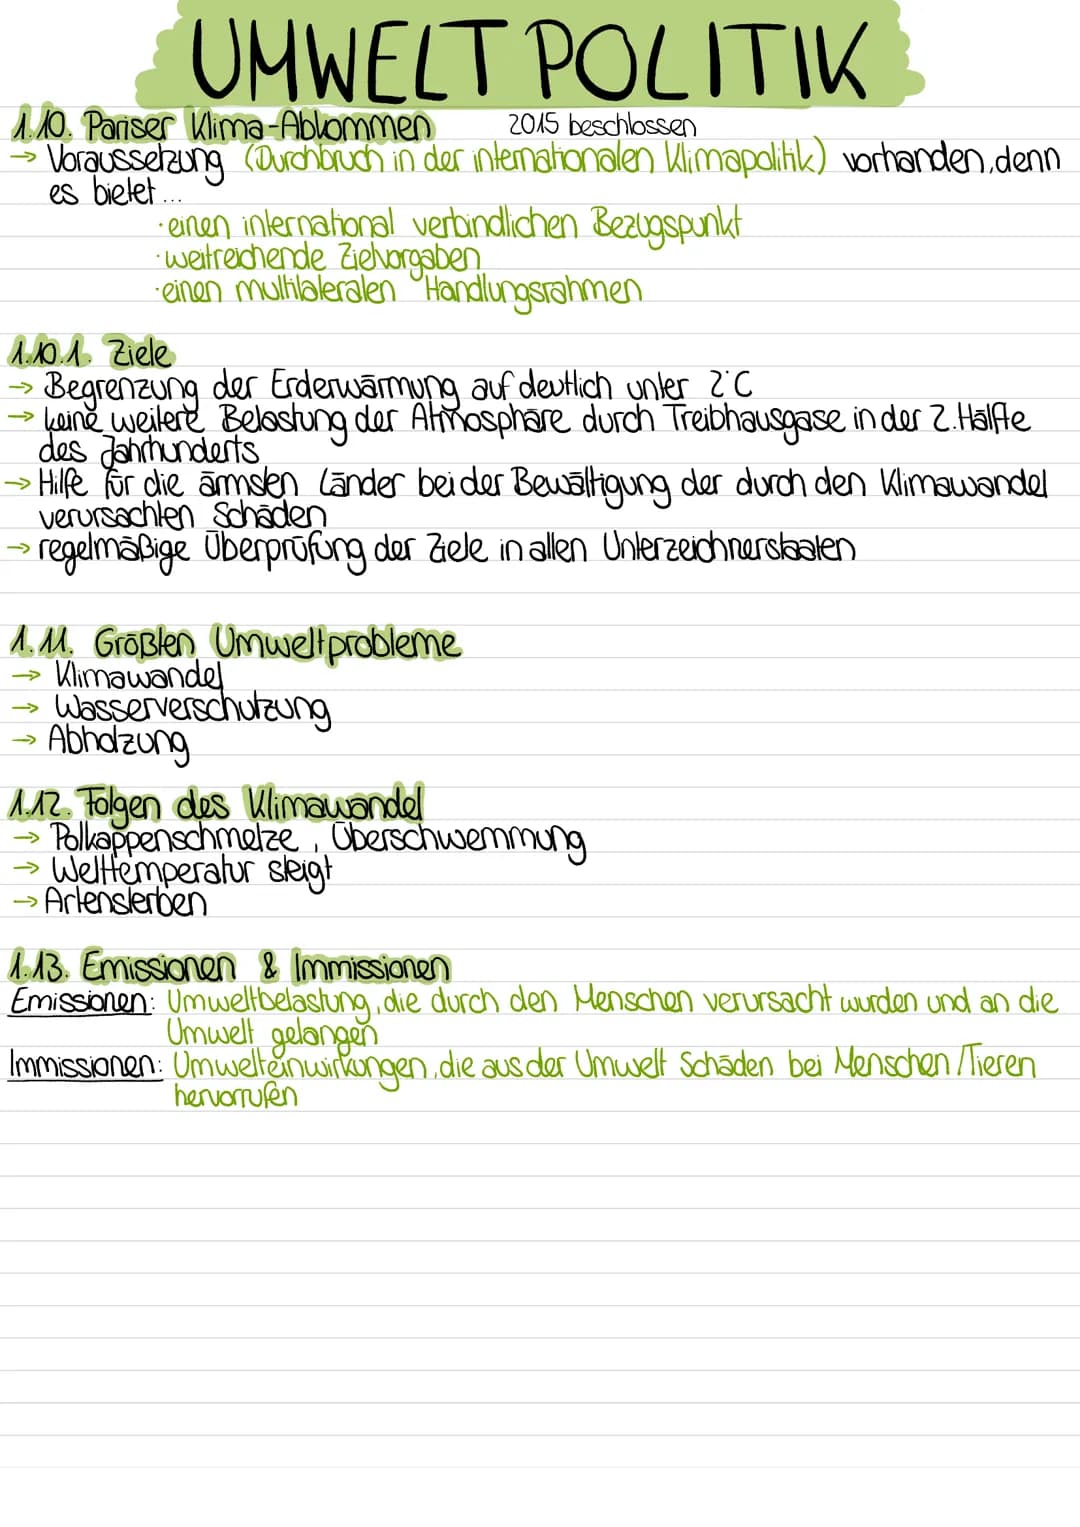 UMWELT POLITIK
1.10. Pariser Klima-Abkommen 2015 beschlossen
→ Voraussetzung (Durchbruch in der internationalen Klimapolitik) vorhanden, denn
es bietet...
· einen international verbindlichen Bezugspunkt
· weitreichende Zielvorgaben
· einen multilateralen Handlungsrahmen
1.10.1. Ziele
→ Begrenzung der Erderwärmung auf deutlich unter 2°C
→ keine weitere Belastung der Atmosphäre durch Treibhausgase in der 2. Hälfte
des Jahrhunderts
→ Hilfe für die ärmsten Länder bei der Bewältigung der durch den Klimawandel
verursachten Schäden
→ regelmäßige Überprüfung der Ziele in allen Unterzeichnerstaaten
1.11. Größten Umweltprobleme
→ Klimawandel
→ Wasserverschutzung
→ Abholzung
1.12. Folgen des Klimawandel
→ Polkappenschmelze, Überschwemmung
→ Welttemperatur steigt
→ Artensterben
1.13. Emissionen & Immissionen
Emissionen: Umweltbelastung, die durch den Menschen verursacht wurden und an die
Umwelt gelangen
Immissionen: Umwelteinwirkungen, die aus der Umwelt Schäden bei Menschen/Tieren
hervorrufen